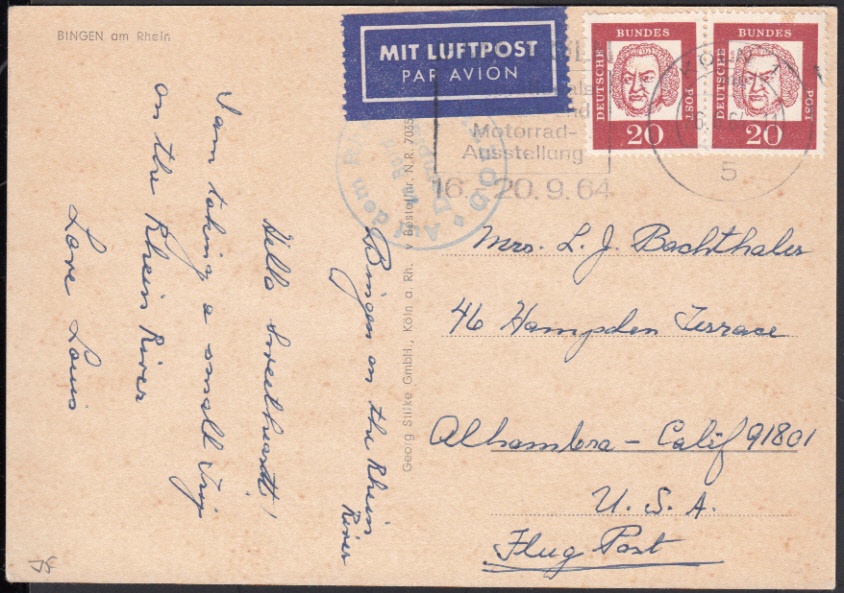 BINGEN am Rhein
MIT LUFTPOST
PAR AVION
DEUTSCHE
BUNDES
POST
20
DEUTSCHE
BUNDES
POST
20
KÖLN
5
Motorrad-
Ausstellung
16.-20.9.64
Auf dem
Georg Stilke GmbH., Köln a. Rh. v Bestell-Nr. N.R.
Bingen on the Rhein
River
Hello Sweetheart!
I am taking a small Trip
on the Rhein River
Love Louis
Mrs. L. J. Bachthaler
46 Hampden Terrace
Alhambra - Calif 91801
U. S. A.
Flug Post